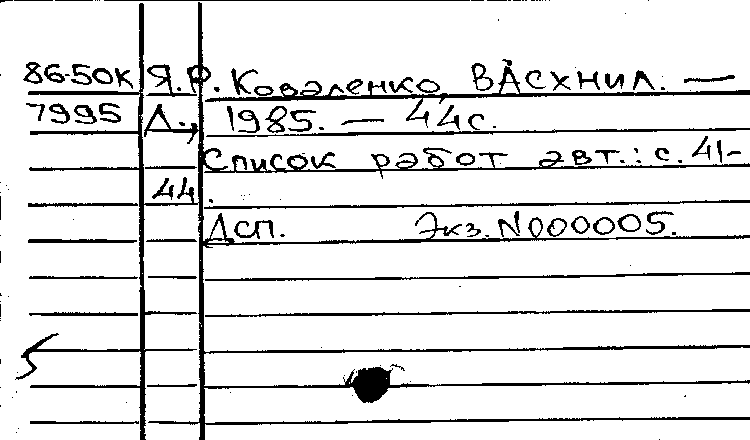 86-50к Я.Р. Коваленко, ВАСХНИЛ. —
7995 Л., 1985. — 44с.
Список работ авт.: с. 41-
44.
Дсп. Экз. N000005.